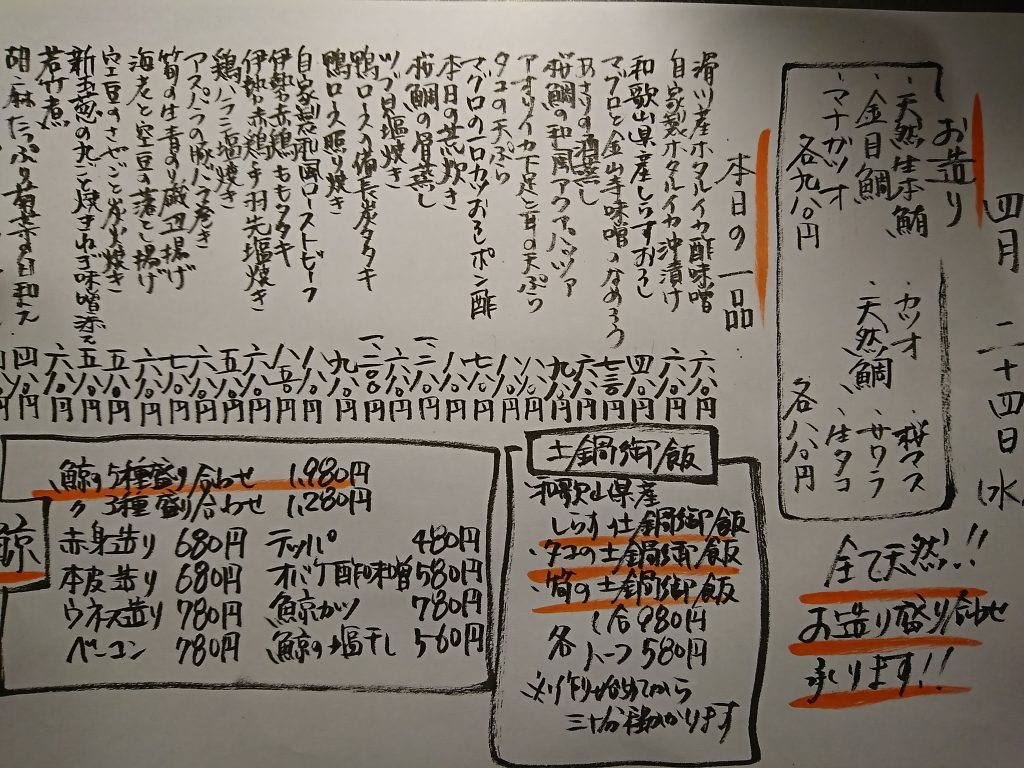 四月 二十四日(水)
お造り
・天然生本鮪
・金目鯛
・マナガツオ
各九八〇円
・カツオ ・桜マス
・天然鯛 ・サワラ
・生タコ
各八八〇円
全て天然!!
お造り盛り合わせ
承ります!!
本日の一品
滑川産ホタルイカ酢味噌 六八〇円
自家製ホタルイカ沖漬け 六八〇円
和歌山県産しらすおろし 四八〇円
マグロと金山寺味噌のなめろう 七三〇円
あさりの酒蒸し 六八〇円
桜鯛の和風アクアパッツァ 九八〇円
アオリイカ下足と耳の天ぷら 八八〇円
タコの天ぷら 八八〇円
マグロの一口カツおろしポン酢 七八〇円
本日の煮炊き 八八〇円
桜鯛の骨蒸し
ツブ貝塩焼き 六八〇円
鴨ロースの備長炭タタキ
鴨ロース照り焼き 九八〇円
自家製和風ローストビーフ 八八〇円
伊勢赤鶏ももタタキ 八五〇円
伊勢赤鶏手羽先塩焼き 六八〇円
鶏ハラミ塩焼き 五八〇円
アスパラの豚バラ巻き 六八〇円
筍の生青のり磯辺揚げ 七八〇円
海老と空豆の落とし揚げ 六八〇円
空豆のさやごと炭火焼き 五八〇円
新玉葱の丸ごと焼きねぎ味噌添え 五八〇円
若竹煮 六八〇円
胡麻たっぷり 四八〇円
土鍋御飯
和歌山県産
しらす土鍋御飯
・タコの土鍋御飯
・筍の土鍋御飯
1合980円
各ハーフ580円
※作り始めてから
三十分程かかります
鯨
鯨の5種盛り合わせ 1,980円
〃 3種盛り合わせ 1,280円
赤身造り 680円 テッパ 480円
本皮造り 680円 オバケ酢味噌 580円
ウネス造り 780円 鯨カツ 780円
ベーコン 780円 鯨の塩干し 560円